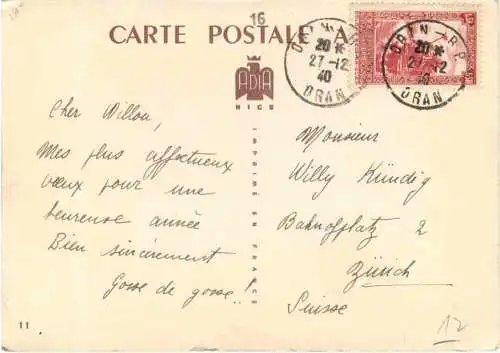 16
CARTE POSTALE A
ORAN R.P.
20 *
27-12
40
ORAN
ORAN R.P.
20 *
27-12
40
ORAN
ADIA
NICE
IMPRIMÉ EN FRANCE
Cher Willou,
Mes plus affectueux
vœux pour une
heureuse année
Bien sincèrement
Gosse de gosse..!
Monsieur
Willy Kündig
Bahnofplatz 2
Zürich
Suisse
11
12